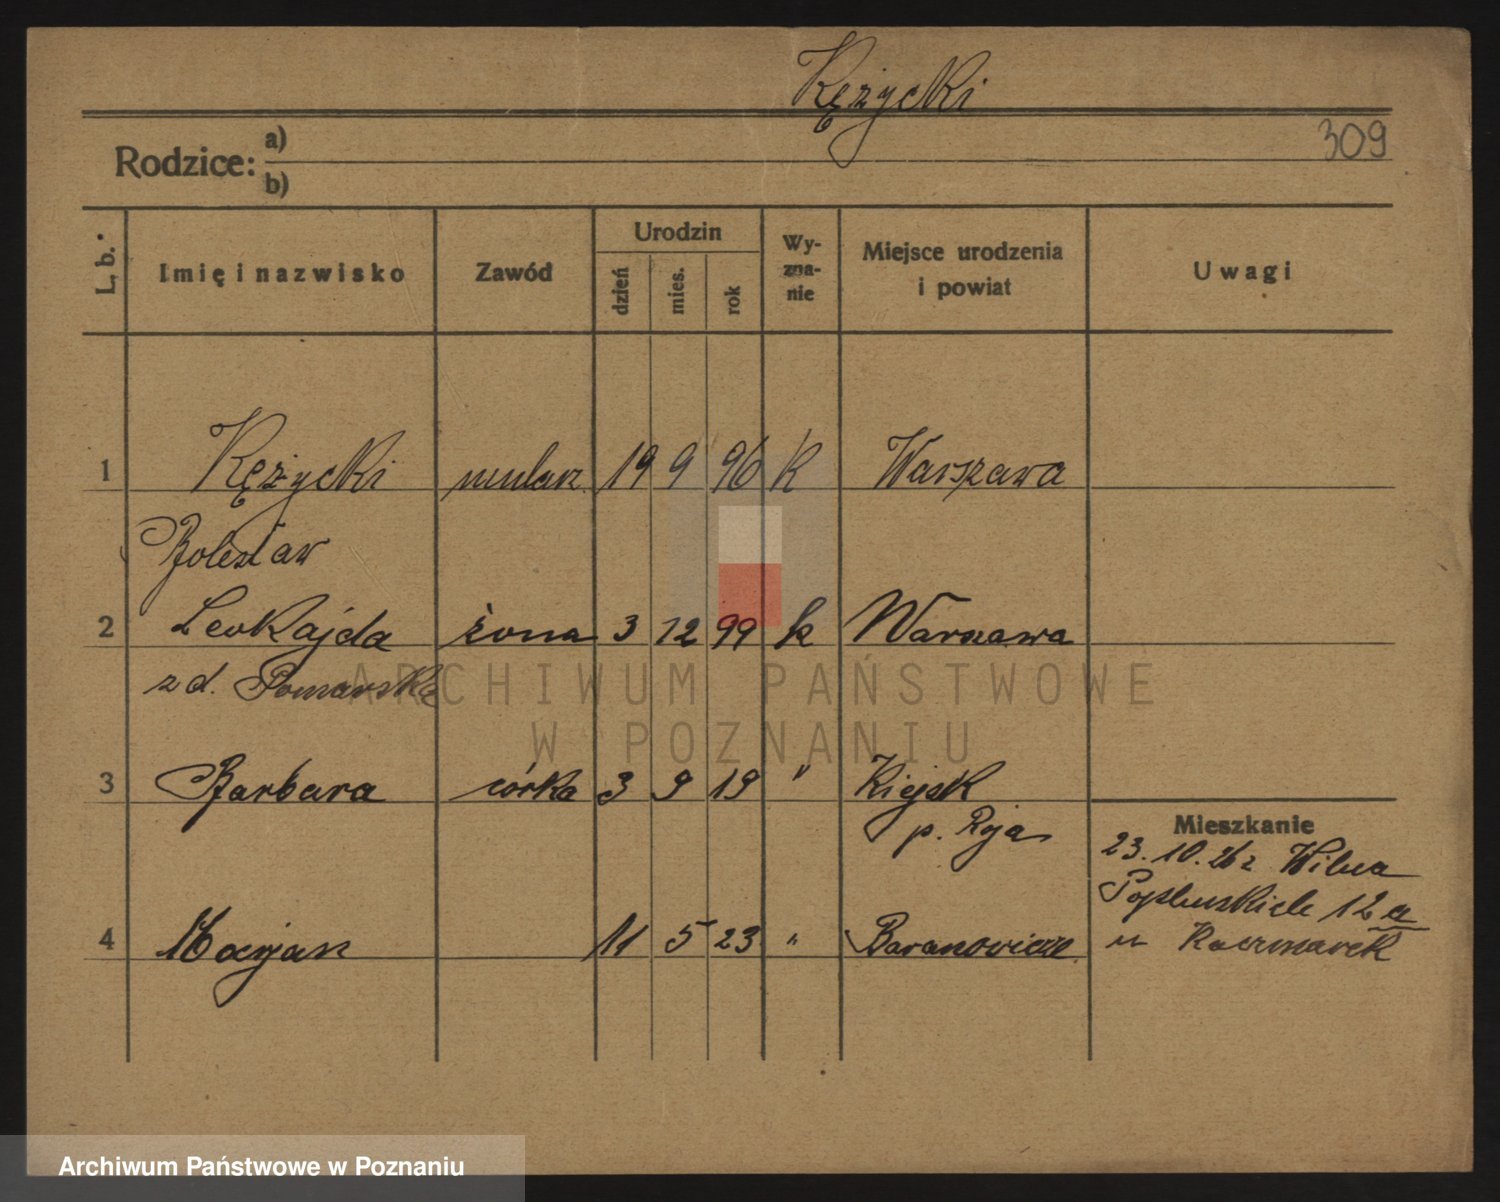 Kężycki
309
Rodzice: a)
b)
L. b. Imię i nazwisko Zawód Urodzin dzień mies. rok Wyznanie Miejsce urodzenia i powiat Uwagi
1 Kężycki mularz 19 9 96 K Warszawa
Bolesław
2 Leokajda żona 3 12 99 k Warszawa
z d. Pomarska
3 Barbara córka 3 9 19 " Kiejsk
p. Ryja
Mieszkanie
23.10.26 z Wilna
12a
4 Marjan 11 5 23 " Baranowicze
u Kaczmarek
ARCHIWUM PAŃSTWOWE
W POZNANIU
Archiwum Państwowe w Poznaniu